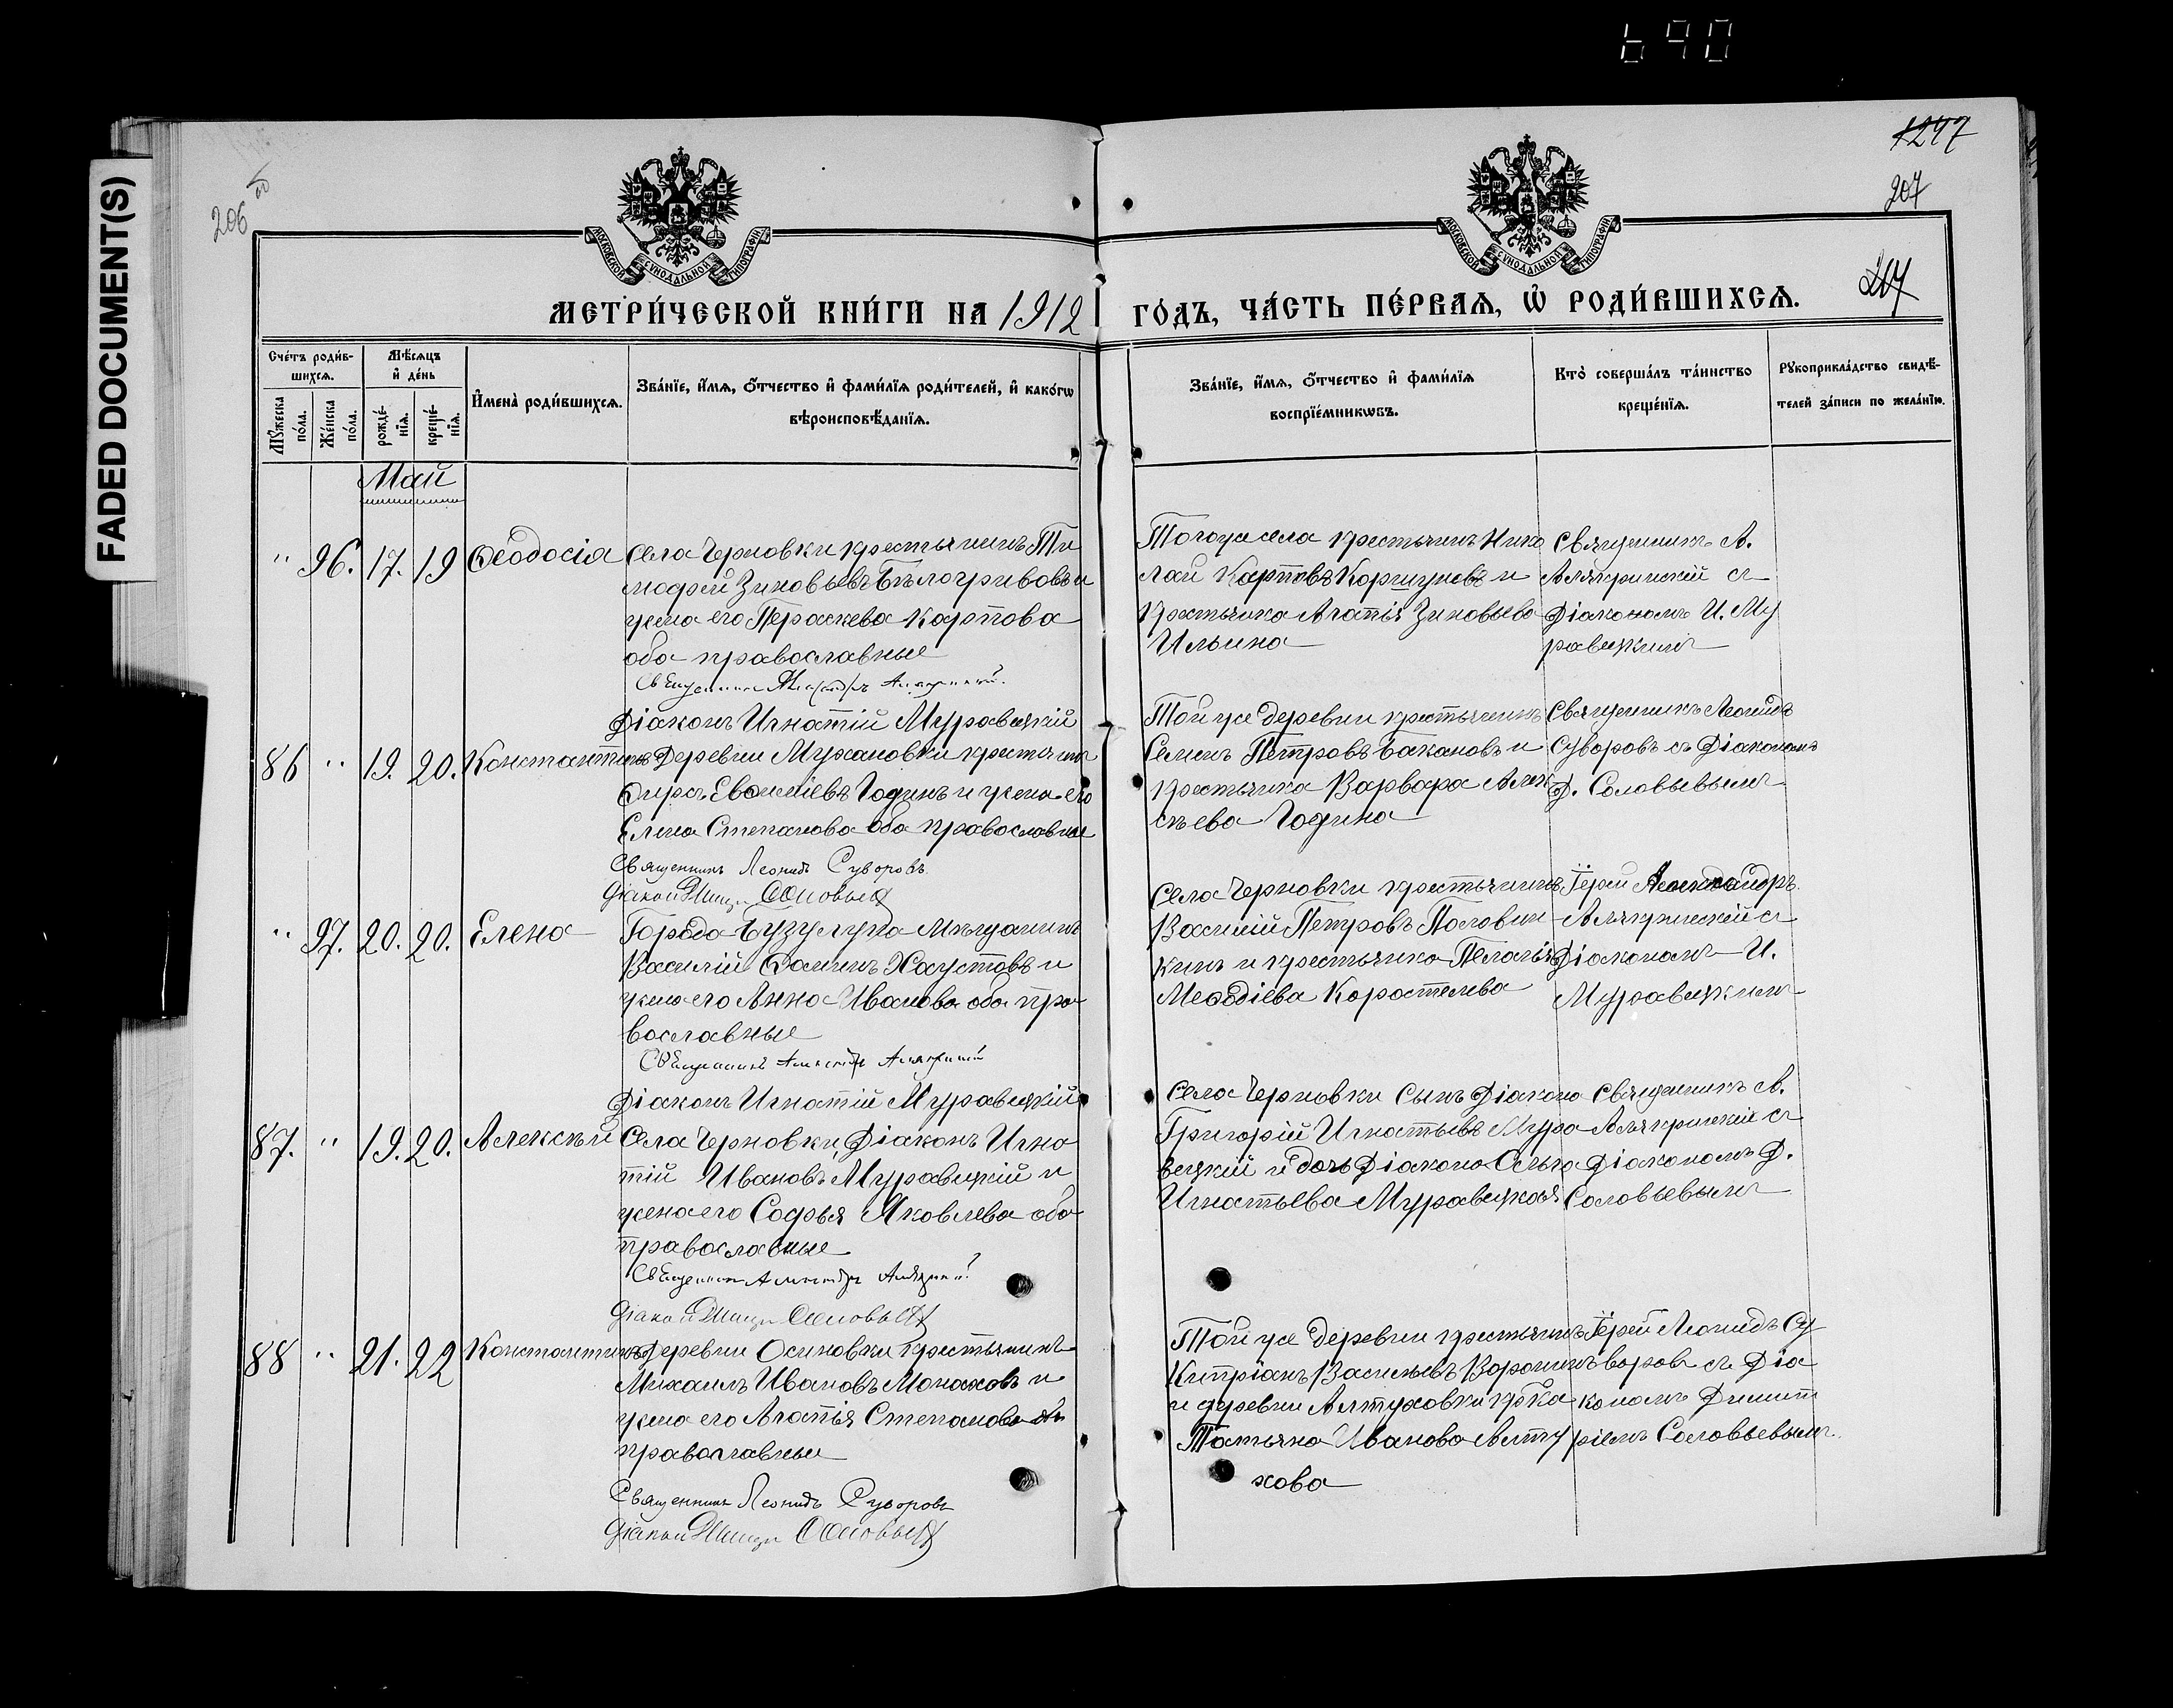 690
FADED DOCUMENT(S)
206
1247
207
МОСКОВСКОЙ СѴНОДАЛЬНОЙ ТИПОГРАФІИ
МОСКОВСКОЙ СѴНОДАЛЬНОЙ ТИПОГРАФІИ
МЕТРИ́ЧЕСКОЙ КНИ́ГИ НА 1912
ГО́ДЪ, ЧА́СТЬ ПЕ́РВАѦ, Ѡ҆ РОДИ́ВШИХСѦ.
Сче́тъ роди́вшихсѧ.
Мꙋ́жеска по́ла.
Же́нска по́ла.
Мѣ́сѧцъ и҆ де́нь
рожде́нїѧ.
креще́нїѧ.
И҆мена̀ роди́вшихсѧ.
Зва́нїе, и҆́мѧ, ѻ҆́тчество и҆ фами́лїѧ роди́телей, и҆ како́гѡ
вѣроисповѣ́данїѧ.
Зва́нїе, и҆́мѧ, ѻ҆́тчество и҆ фами́лїѧ
воспрїе́мникѡвъ.
Кто̀ соверша́лъ та́инство
креще́нїѧ.
Рꙋкоприкла́дство свидѣ́-
телей за́писи по жела́нїю.
Май
" 96. 17. 19 Ѳеодосія
Села Черновки крестьянинъ Ти
моѳей Зиновьевъ Бѣлогривовъ и
жена его Параскева Карпова
оба православные
Діаконъ Игнатій Муравицкій
Тогоже села крестьянинъ Нико
лай Карповъ Коршуновъ и
крестьянка Агапія Зиновьева
Ильина
Священникъ А.
Алякринскій съ
Діакономъ И. Му
равицкимъ
86 " 19. 20. Константинъ
Деревни Мухановки крестьянинъ
Ѳирсъ Годинъ и жена его
Елена Степанова оба православные
Священникъ Леонидъ Суворовъ
Той же деревни крестьянинъ
Семенъ Петровъ Бакановъ и
крестьянка Варвара Алек
сѣева Година
Священникъ Леонидъ
Суворовъ съ Діакономъ
Д. Соловьевымъ
" 97. 20. 20. Елена
Города Бузулука мѣщанинъ
Василій Ѳоминъ Хаустовъ и
жена его Анна Иванова оба пра
вославные
Діаконъ Игнатій Муравицкій
Села Черновки крестьянинъ
Василій Петровъ Половин
кинъ и крестьянка Пелагія
Меѳодіева Коростелева
Іерей Александръ
Алякринскій съ
Діакономъ И.
Муравицкимъ
87. " 19. 20. Алексѣй
Села Черновки, Діаконъ Игна
тій Ивановъ Муравицкій и
жена его Софья Яковлева оба
православные
Села Черновки сынъ Діакона
Григорій Игнатьевъ Мура
вицкій и дочь Діакона Ольга
Игнатьева Муравицкая
Священникъ А.
Алякринскій съ
Діакономъ Д.
Соловьевымъ
88 " 21. 22 Константинъ
Деревни Осиновки крестьянинъ
Михаилъ Ивановъ Монаховъ и
жена его Агапія Степанова оба
православные
Священникъ Леонидъ Суворовъ
Той же деревни крестьянинъ
Кипріанъ Васильевъ Воронинъ
и деревни Алтуховки кр-ка
Татьяна Иванова Алту
хова
Іерей Леонидъ Су
воровъ съ Діа
кономъ Димит
ріемъ Соловьевымъ.